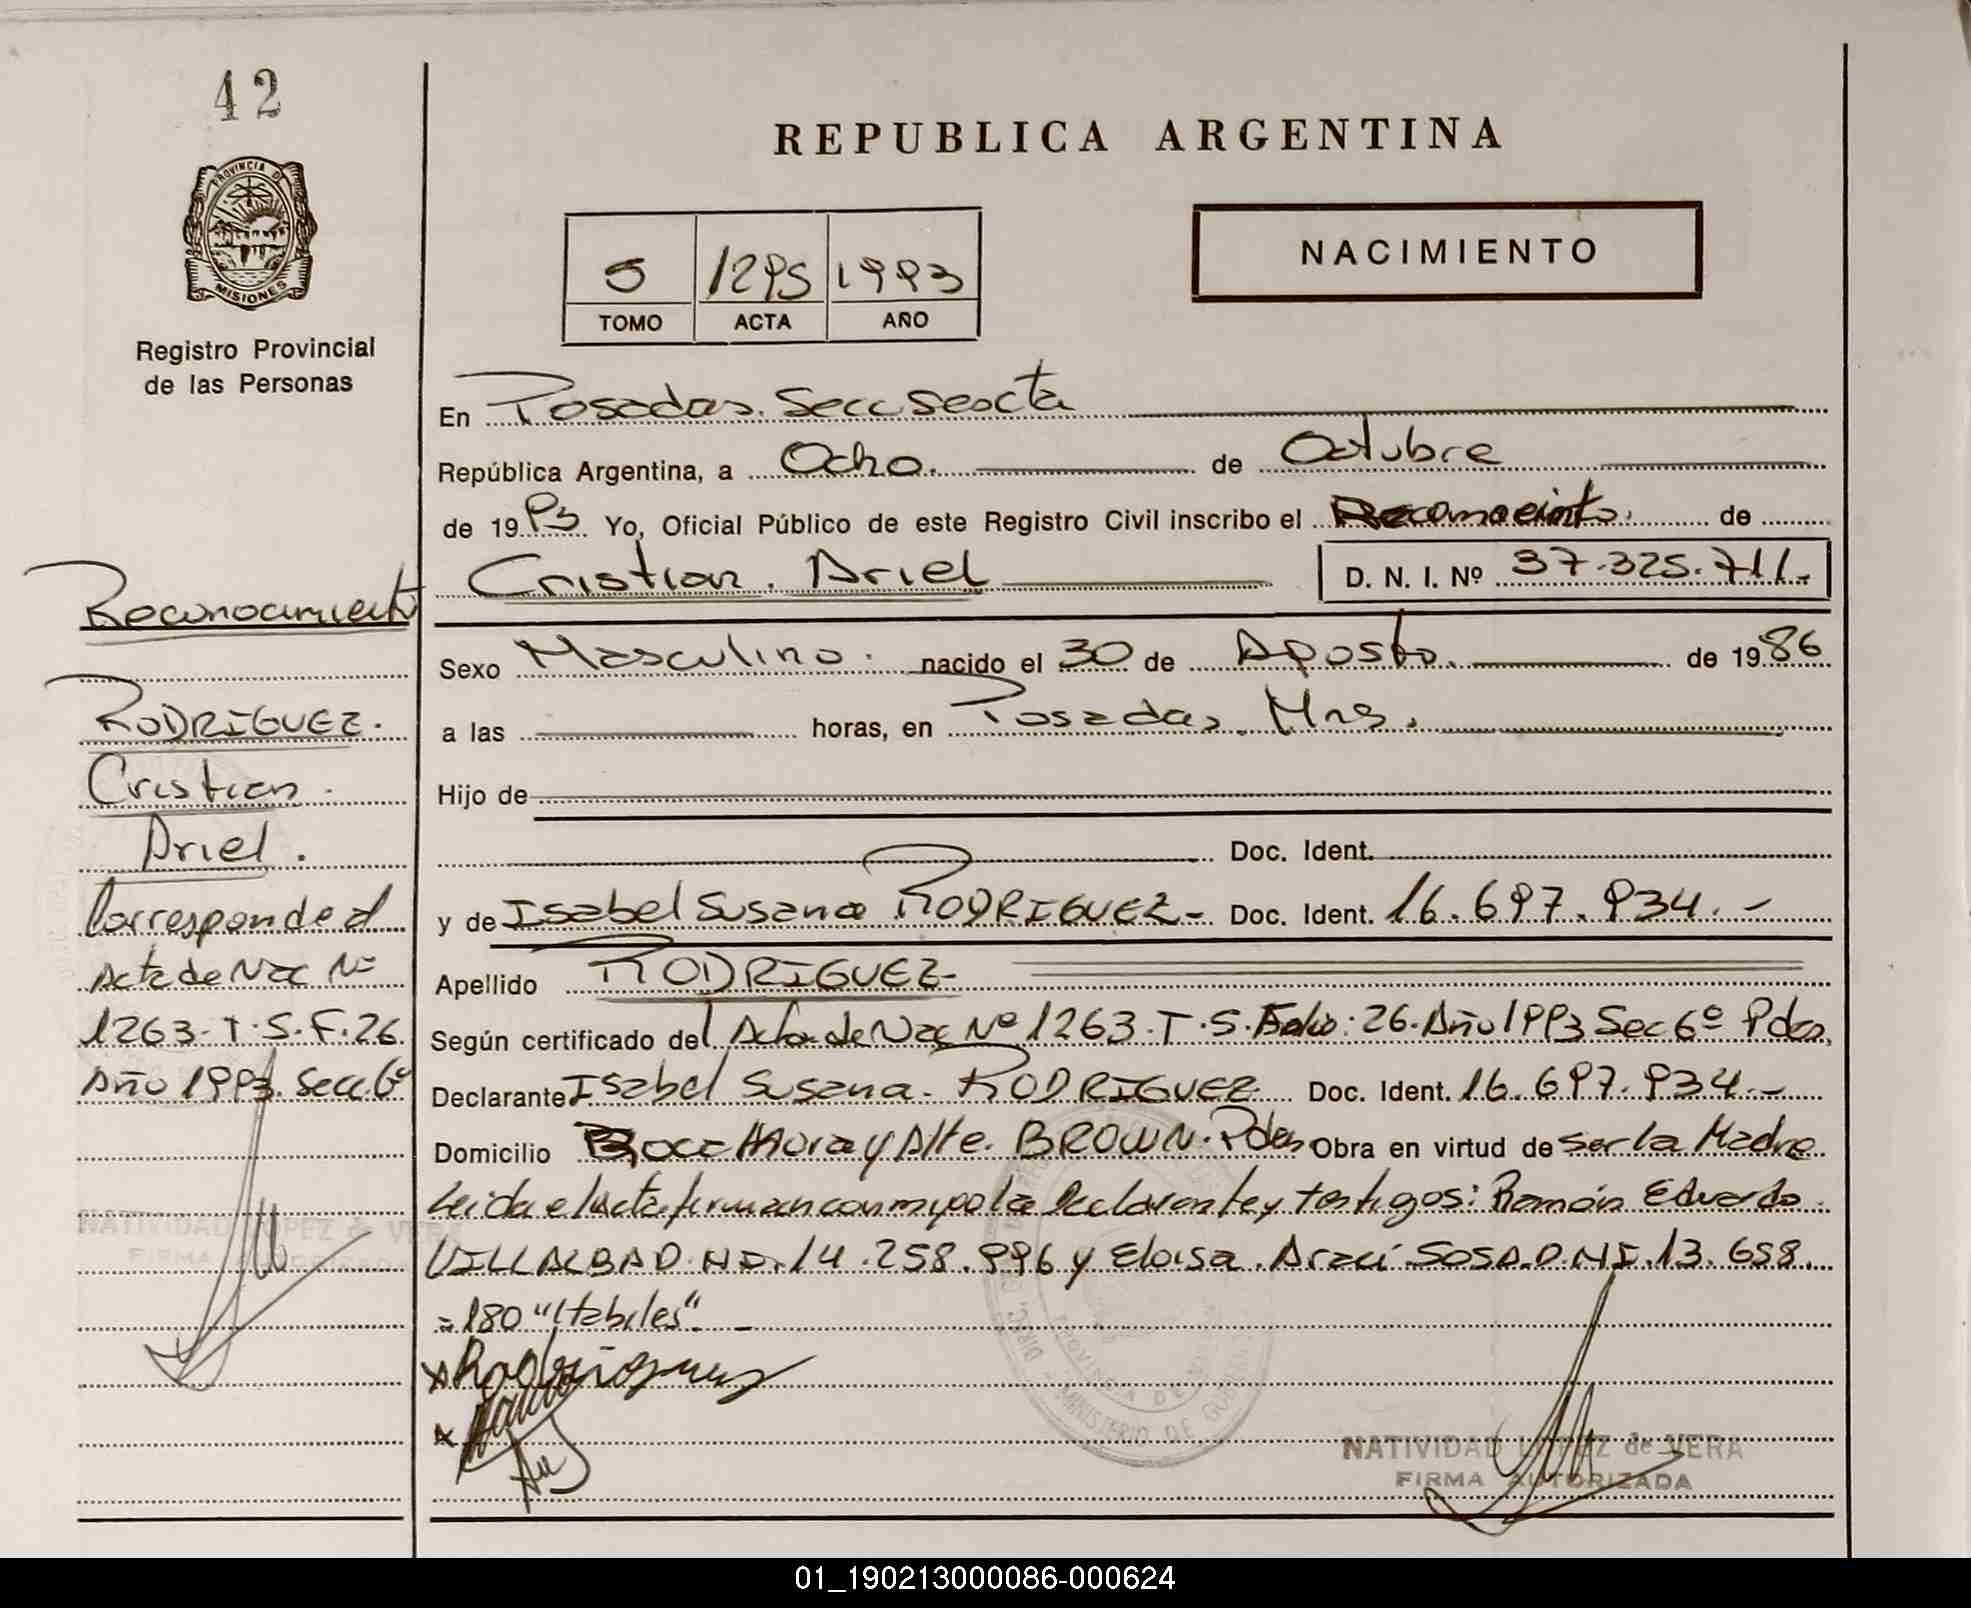 42
REPUBLICA ARGENTINA
PROVINCIA DE
MISIONES
Registro Provincial
de las Personas
5 1295 1993
TOMO ACTA AÑO
NACIMIENTO
En Posadas. Secc Sexta
República Argentina, a Ocho. de Octubre
de 1993 Yo, Oficial Público de este Registro Civil inscribo el Reconocimiento. de
Cristian. Ariel D. N. I. Nº 37.325.711.-
Sexo Masculino. nacido el 30 de Agosto. de 1986
a las horas, en Posadas Mns.
Hijo de
Doc. Ident.
y de Isabel Susana RODRIGUEZ- Doc. Ident. 16.697.934.-
Apellido RODRIGUEZ-
Según certificado del Acta de Nac Nº 1263.T.5.Folio:26.Año 1993 Sec 6º Pdas.
Declarante Isabel Susana. RODRIGUEZ. Doc. Ident. 16.697.934.-
Domicilio Roca Mora y Alte. BROWN. Pdas Obra en virtud de ser la Madre
Leida el Acta firman conmigo la Declarante y testigos: Ramón Eduardo
VILLALBA D.N.I. 14.258.996 y Eloisa. Araci SOSA. D.N.I. 13.658.
=180 "Habiles".-
Rodriguez
NATIVIDAD LOPEZ de VERA
FIRMA AUTORIZADA
MINISTERIO DE
Reconocimiento
RODRIGUEZ.
Cristian.
Ariel.
Corresponde al
Acta de Nac Nº
1263-T.5.F.26
Año 1993. Secc. 6º
NATIVIDAD LOPEZ de VERA
FIRMA AUTORIZADA
01_190213000086-000624